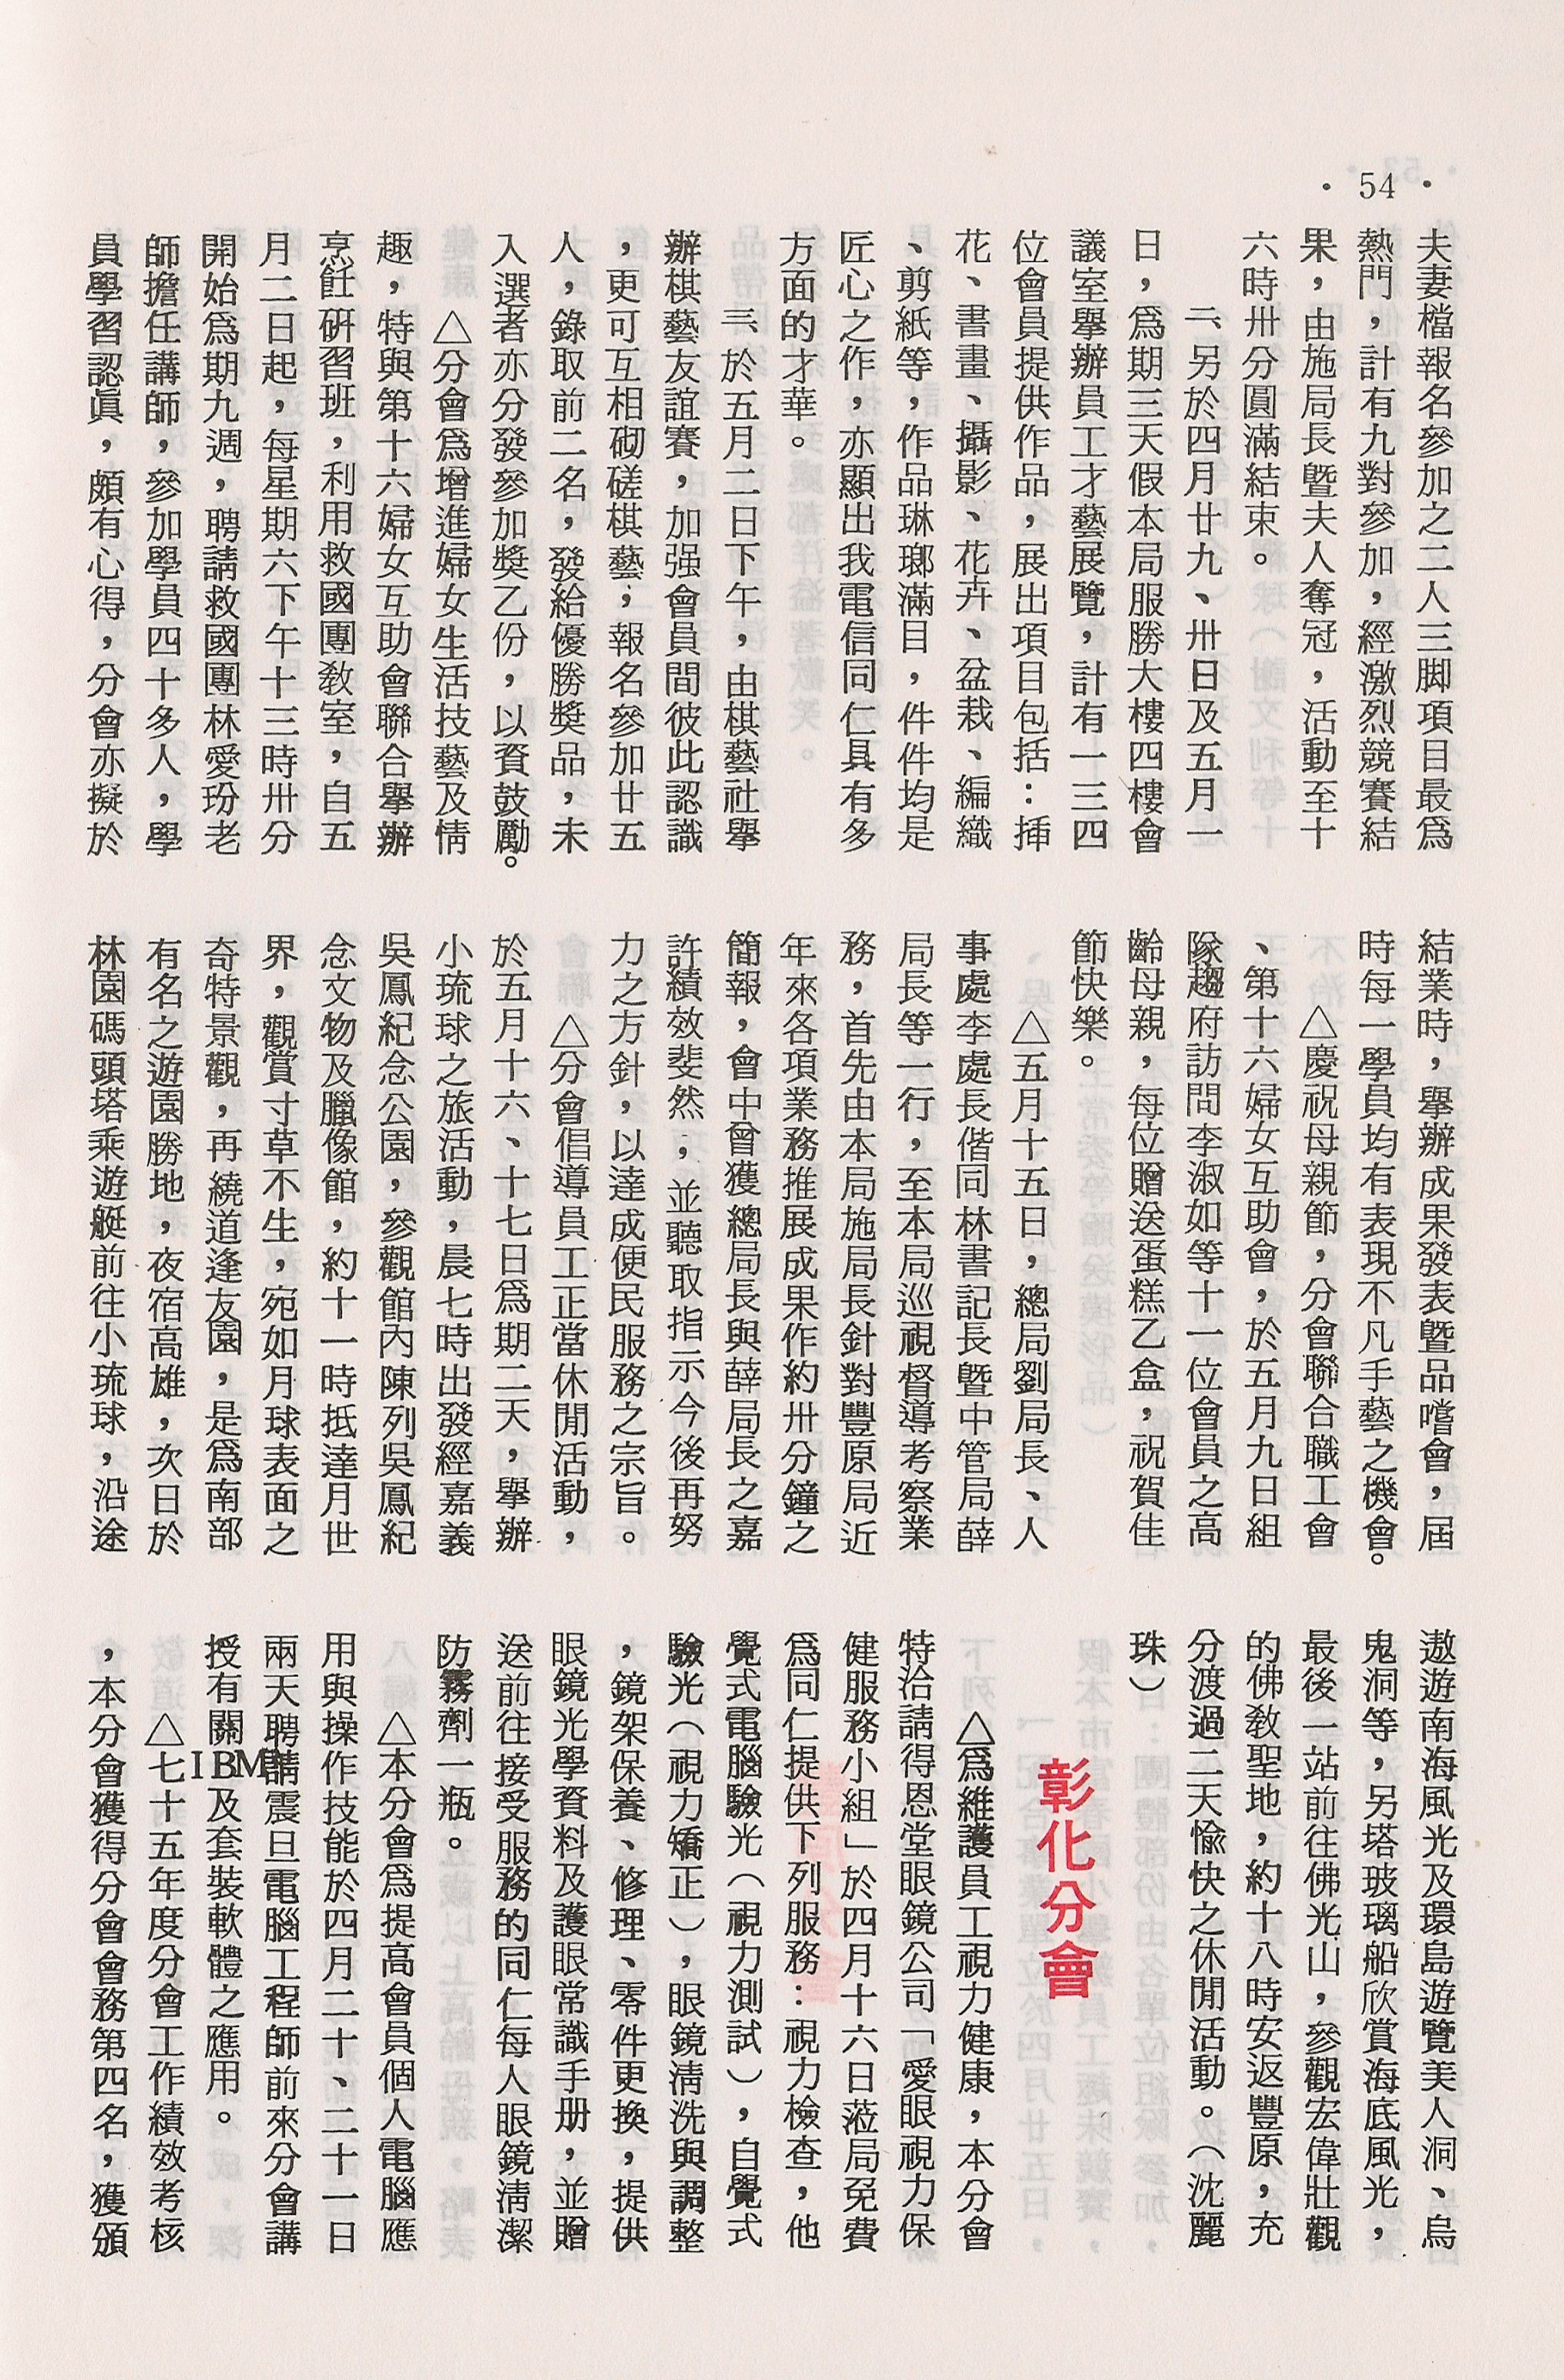 • 54 •
夫妻檔報名參加之二人三脚項目最爲
熱門，計有九對參加，經激烈競賽結
果，由施局長暨夫人奪冠，活動至十
六時卅分圓滿結束。
二、另於四月廿九、卅日及五月一
日，爲期三天假本局服勝大樓四樓會
議室舉辦員工才藝展覽，計有一三四
位會員提供作品，展出項目包括：揷
花、書畫、攝影、花卉、盆栽、編織
、剪紙等，作品琳瑯滿目，件件均是
匠心之作，亦顯出我電信同仁具有多
方面的才華。
三、於五月二日下午，由棋藝社舉
辦棋藝友誼賽，加强會員間彼此認識
，更可互相砌磋棋藝；報名參加廿五
人，錄取前二名，發給優勝獎品，未
入選者亦分發參加獎乙份，以資鼓勵。
△分會爲增進婦女生活技藝及情
趣，特與第十六婦女互助會聯合舉辦
烹飪研習班，利用救國團敎室，自五
月二日起，每星期六下午十三時卅分
開始爲期九週，聘請救國團林愛玢老
師擔任講師，參加學員四十多人，學
員學習認眞，頗有心得，分會亦擬於
結業時，舉辦成果發表暨品嚐會，屆
時每一學員均有表現不凡手藝之機會。
△慶祝母親節，分會聯合職工會
、第十六婦女互助會，於五月九日組
隊趨府訪問李淑如等十一位會員之高
齡母親，每位贈送蛋糕乙盒，祝賀佳
節快樂。
△五月十五日，總局劉局長、人
事處李處長偕同林書記長暨中管局薛
局長等一行，至本局巡視督導考察業
務，首先由本局施局長針對豐原局近
年來各項業務推展成果作約卅分鐘之
簡報，會中曾獲總局長與薛局長之嘉
許績效斐然，並聽取指示今後再努
力之方針，以達成便民服務之宗旨。
△分會倡導員工正當休閒活動，
於五月十六、十七日爲期二天，舉辦
小琉球之旅活動，晨七時出發經嘉義
吳鳳紀念公園，參觀館內陳列吳鳳紀
念文物及臘像館，約十一時抵達月世
界，觀賞寸草不生，宛如月球表面之
奇特景觀，再繞道逢友園，是爲南部
有名之遊園勝地，夜宿高雄，次日於
林園碼頭塔乘遊艇前往小琉球，沿途
遨遊南海風光及環島遊覽美人洞、烏
鬼洞等，另塔玻璃船欣賞海底風光，
最後一站前往佛光山，參觀宏偉壯觀
的佛敎聖地，約十八時安返豐原，充
分渡過二天愉快之休閒活動。（沈麗
珠）
彰化分會
△爲維護員工視力健康，本分會
特洽請得恩堂眼鏡公司「愛眼視力保
健服務小組」於四月十六日蒞局免費
爲同仁提供下列服務：視力檢查，他
覺式電腦驗光（視力測試），自覺式
驗光（視力矯正），眼鏡淸洗與調整
，鏡架保養、修理、零件更換，提供
眼鏡光學資料及護眼常識手册，並贈
送前往接受服務的同仁每人眼鏡淸潔
防霧劑一瓶。
△本分會爲提高會員個人電腦應
用與操作技能於四月二十、二十一日
兩天聘請震旦電腦工程師前來分會講
授有關IBM及套裝軟體之應用。
△七十五年度分會工作績效考核
，本分會獲得分會會務第四名，獲頒